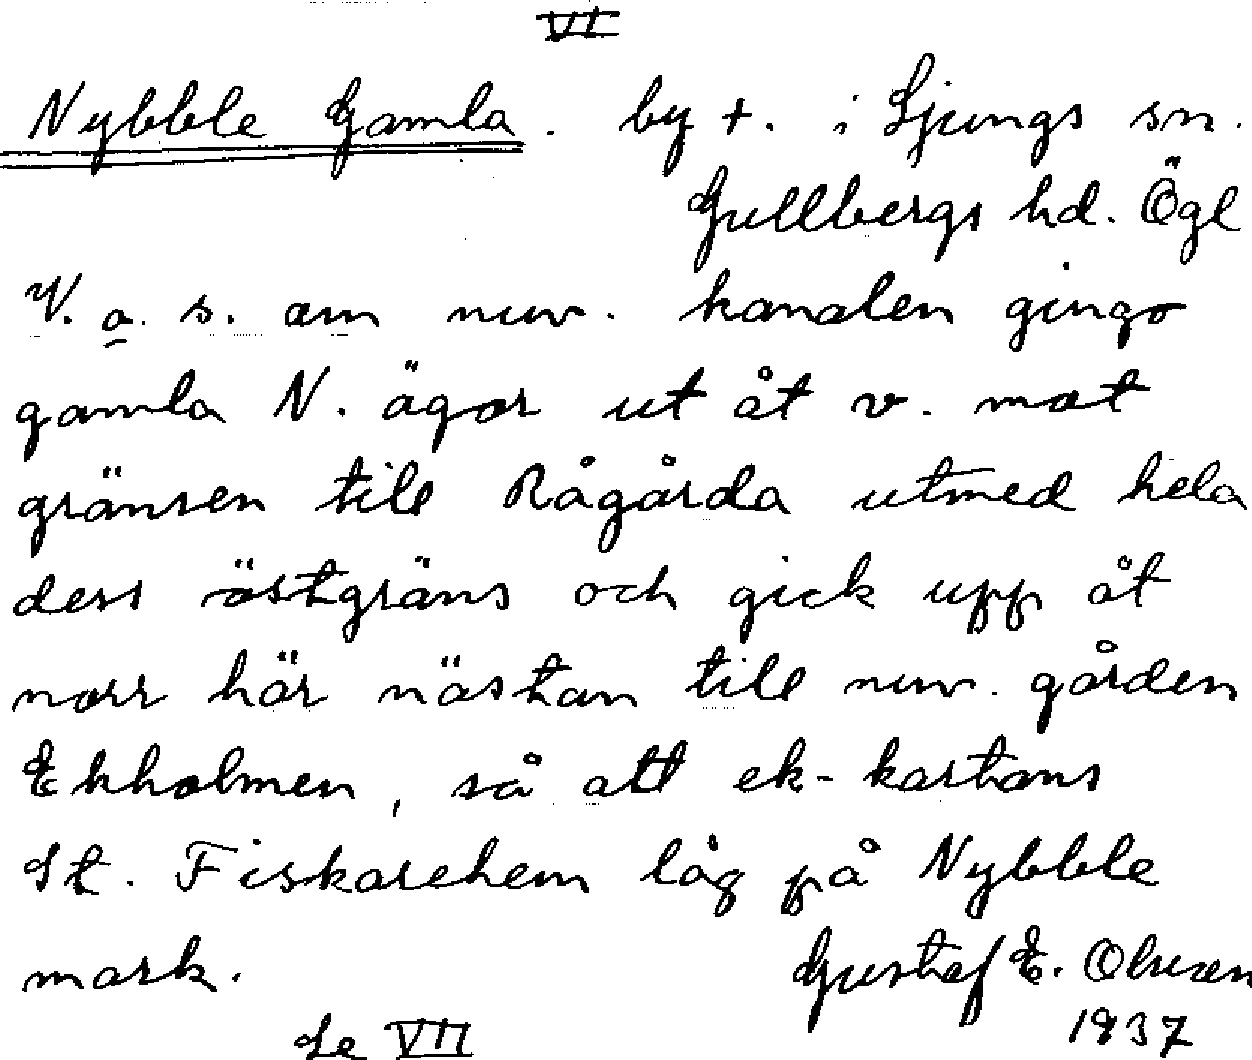 VI
Nybble Gamla. by +. i Ljungs sn.
Gullbergs hd. Ögl
V. o. s. om nuv. kanalen gingo
gamla N. ägor ut åt v. mot
gränsen till Rågårda utmed hela
dess östgräns och gick upp åt
norr här nästan till nuv. gården
Ekholmen, så att ek-kartans
St. Fiskarehem låg på Nybble
mark. Gustaf E. Olsson
1937
Se VII